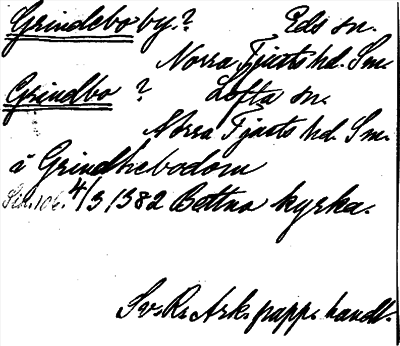 Grindebo by.? Eds sn.
Norra Tjusts hd. Sm.
Grindbo ? Lofta sn.
Norra Tjusts hd. Sm.
å Grindhebodom
4/3 1382 Bettna kyrka.
Sv. R. Ark. papp. handl.